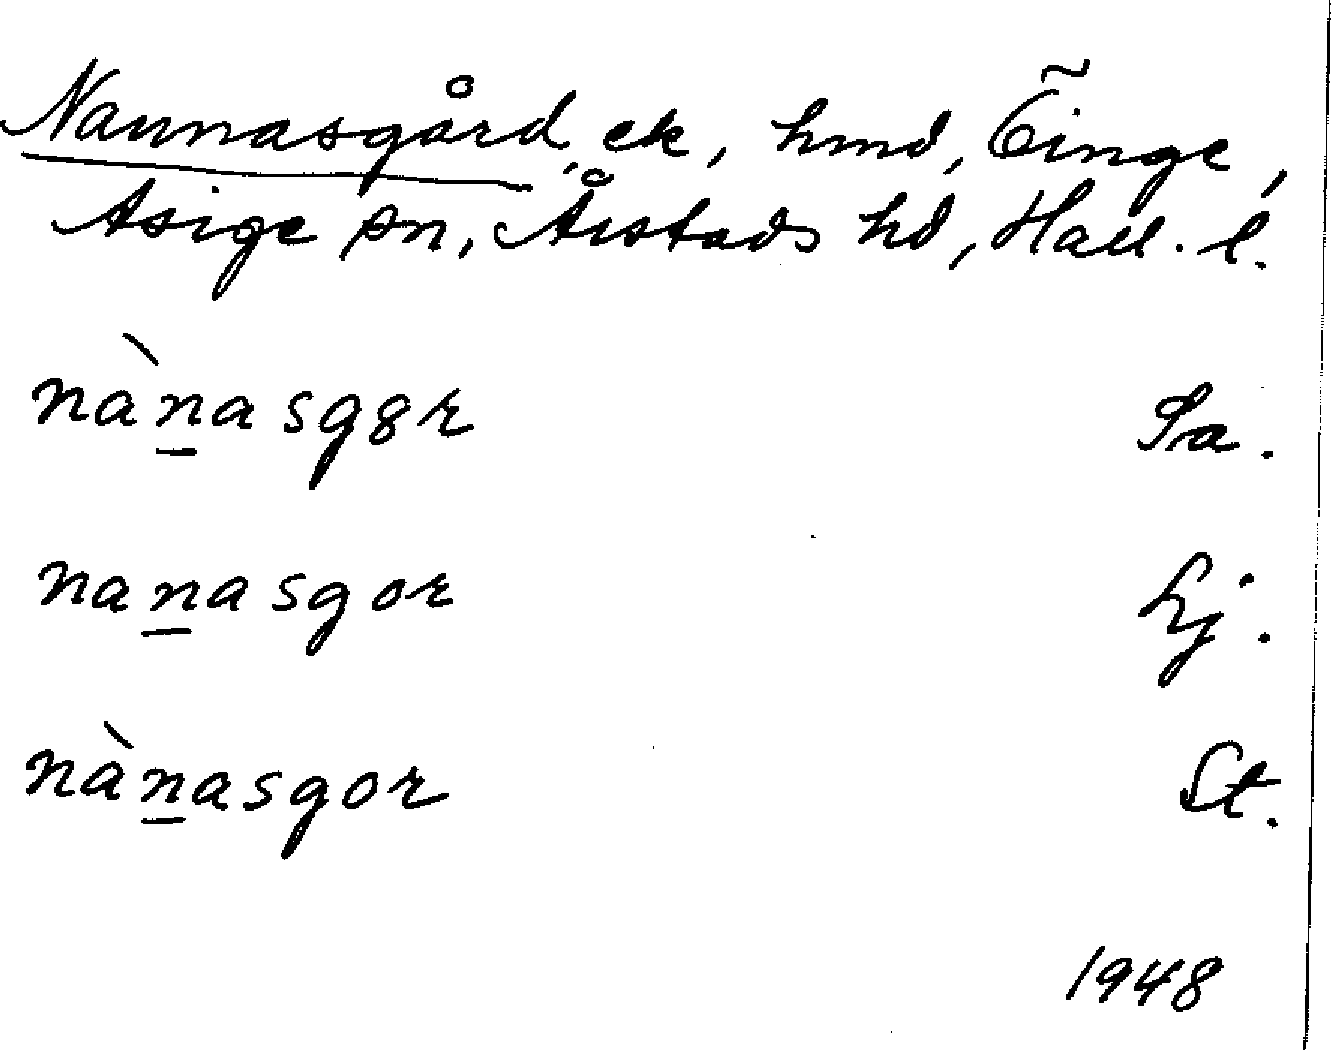 Nannasgård, ek, hmd, Öinge,
Asige sn, Årstads hd, Hall. l.
nàn̲asg8r Sa.
nan̲asgor Lj.
nàn̲asgor St.
1948